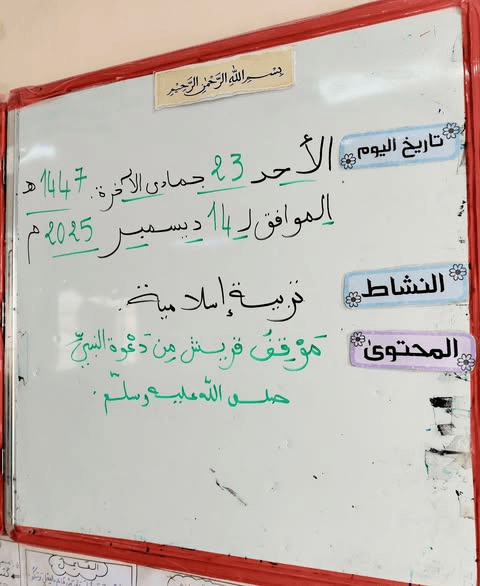 بسم الله الرحمن الرحيم
تاريخ اليوم
الأحد 23 جمادى الآخرة 1447 هـ
الموافق لـ 14 ديسمبر 2025 م
النشاط
تربية إسلامية.
المحتوى
مَوْقِفُ قريش مِن دَعْوة النبيّ
صلى الله عليه وسلّم.